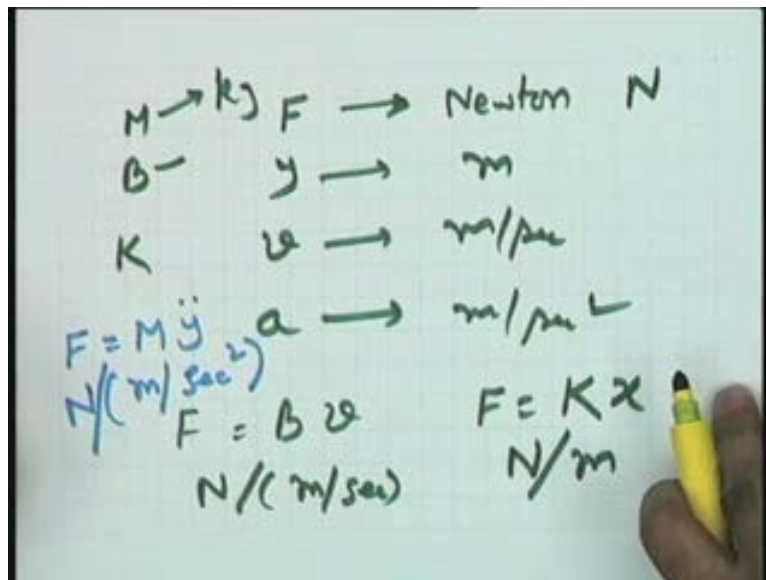 M → kg F → Newton N
B — y → m
K v → m/sec
a → m/sec²
F = M ÿ
N/(m/sec²)
F = B v
N/(m/sec)
F = K x
N/m